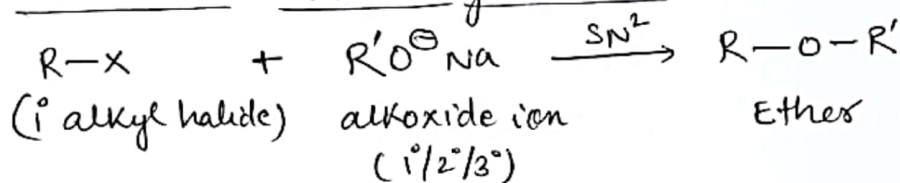 R—X + R'O⊖Na SN² → R—O—R'
(1° alkyl halide) alkoxide ion Ether
(1°/2°/3°)